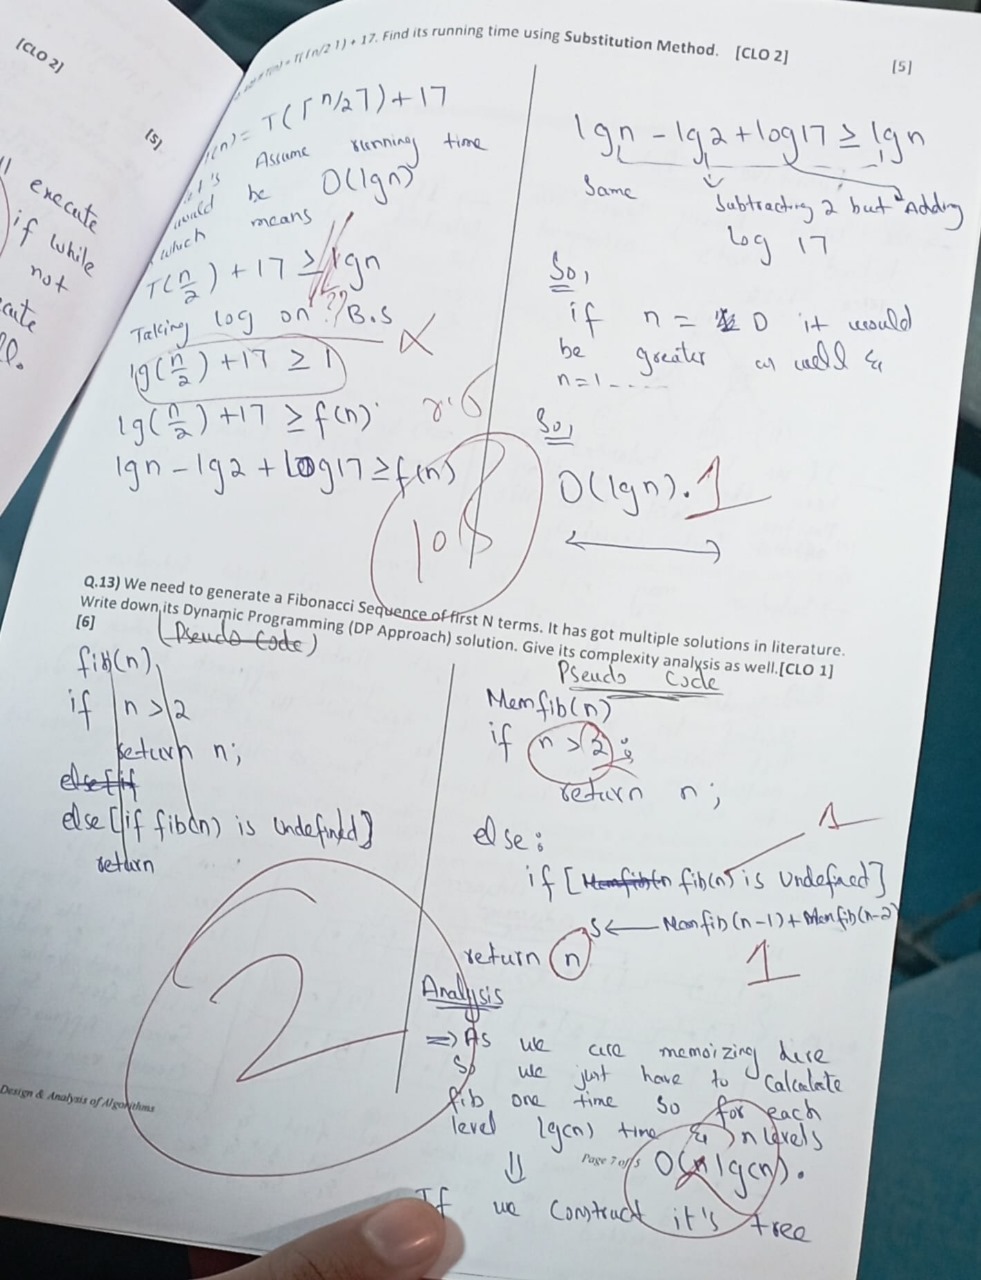 [CLO 2]
[5]
execute
if while
not
T(⌈n/2⌉) + 17. Find its running time using Substitution Method. [CLO 2]
[5]
T(n) = T(⌈n/2⌉) + 17
Assume running time
would be O(lgn)
which means
T(n/2) + 17 ≥ lgn
??
Taking log on B.S
lg(n/2) + 17 ≥ 1
lg(n/2) + 17 ≥ f(n)
lgn - lg2 + log17 ≥ f(n)
lgn - lg2 + log17 ≥ lgn
Same
Subtracting 2 but Adding
log 17
So,
if n = 0 it would
be greater as well &
n=1 ....
So,
O(lgn).
1
Q.13) We need to generate a Fibonacci Sequence of first N terms. It has got multiple solutions in literature.
Write down its Dynamic Programming (DP Approach) solution. Give its complexity analysis as well.[CLO 1]
[6]
(Pseudo Code)
fib(n)
if n > 2
return n;
else if
else [if fib(n) is undefined]
return
2
Pseudo Code
Memfib(n)
if n > 2;
return n;
else:
1
if [Memfib(n fib(n) is Undefined]
S ← Memfib(n-1) + Memfib(n-2)
return n
1
Analysis
⇒ As we are memoizing here
So we just have to Calculate
fib one time so for each
level lg(n) time & n levels
⇓ O(n lg(n)).
If we construct it's tree
Design & Analysis of Algorithms
Page 7 of 5